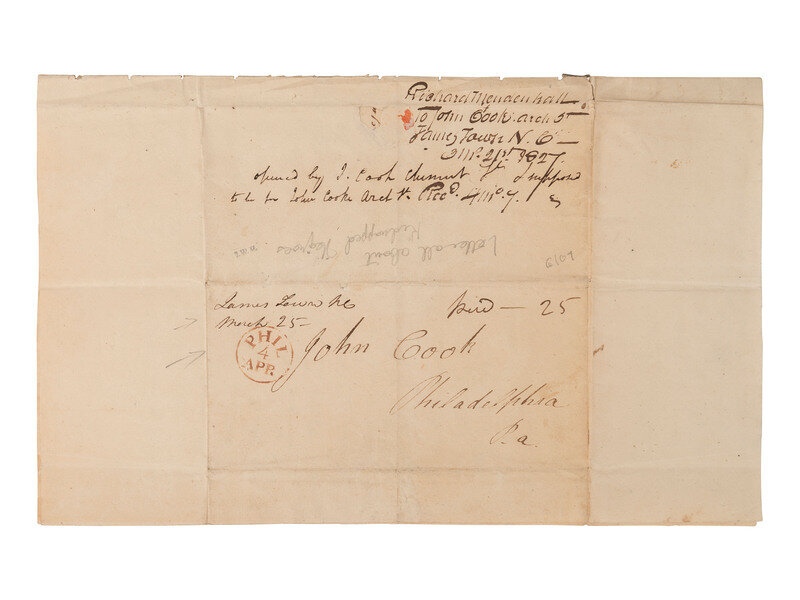 Richard Mendenhall
To John Cook. arch St
James Town N. C
3 Mo. 21st. 1827.
opened by J. Cook Chesnut St I suppose
to be for John Cooke Arch St. Recd. 4 Mo. 7.
Letter all about
Kidnapped Negroes
James Town NC
March 25
paid — 25
PHIL
4
APR.
John Cook
Philadelphia
Pa.